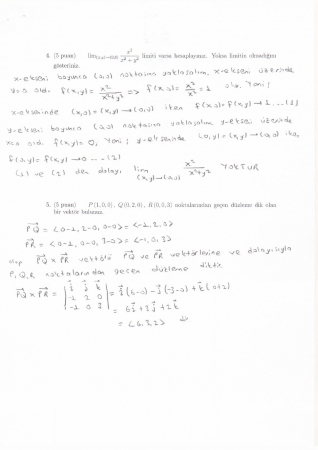 4. (5 puan) lim(x,y)→(0,0) x²/(x²+y²) limiti varsa hesaplayınız. Yoksa limitin olmadığını
gösteriniz.
x-ekseni boyunca (0,0) noktasına yaklaşalım. x-ekseni üzerinde
y=0 dır. f(x,y)= x²/(x²+y²) => f(x,0)= x²/x² = 1 olur. Yani;
x-ekseninde (x,0)=(x,y)→(0,0) iken f(x,0)=f(x,y)→1 ...(1)
y-ekseni boyunca (0,0) noktasına yaklaşalım y-ekseni üzerinde
x=0 dır f(x,y)=0, Yani; y-ekseninde (0,y)=(x,y)→(0,0) iken
f(0,y)=f(x,y)→0 ...(2)
(1) ve (2) den dolayı lim (x,y)→(0,0) x²/(x²+y²) YOKTUR
5. (5 puan) P(1,0,0), Q(0,2,0), R(0,0,3) noktalarından geçen düzleme dik olan
bir vektör bulunuz.
PQ = <0-1, 2-0, 0-0> = <-1,2,0>
PR = <0-1, 0-0, 3-0> = <-1,0,3>
olup PQ×PR vektörü PQ ve PR vektörlerine ve dolayısıyla
P,Q,R noktalarından geçen düzleme diktir.
PQ×PR = | i j k | = i(6-0)-j(-3-0)+k(0+2)
| -1 2 0 | = 6i+3j+2k
| -1 0 3 | = <6,3,2>